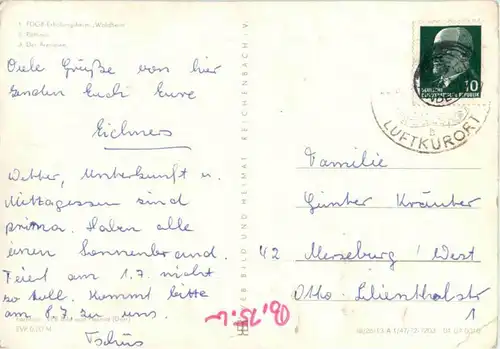 1. FDGB-Erholungsheim „Waldheim"
2. Rathaus
3. Der Armleen
Viele Grüße von hier
senden Euch Eure
Eichners
Wetter, Unterkunft u.
Mittagessen sind
prima. Haben alle
einen Sonnenbrand.
Feiert am 1.7. nicht
so toll. Kommt bitte
am 8.7. zu uns.
Tschüs
BILD UND HEIMAT REICHENBACH i. V.
10
LUFTKURORT
Familie
Günter Kräuter
42 Merseburg / West
Otto-Lilienthalstr
1